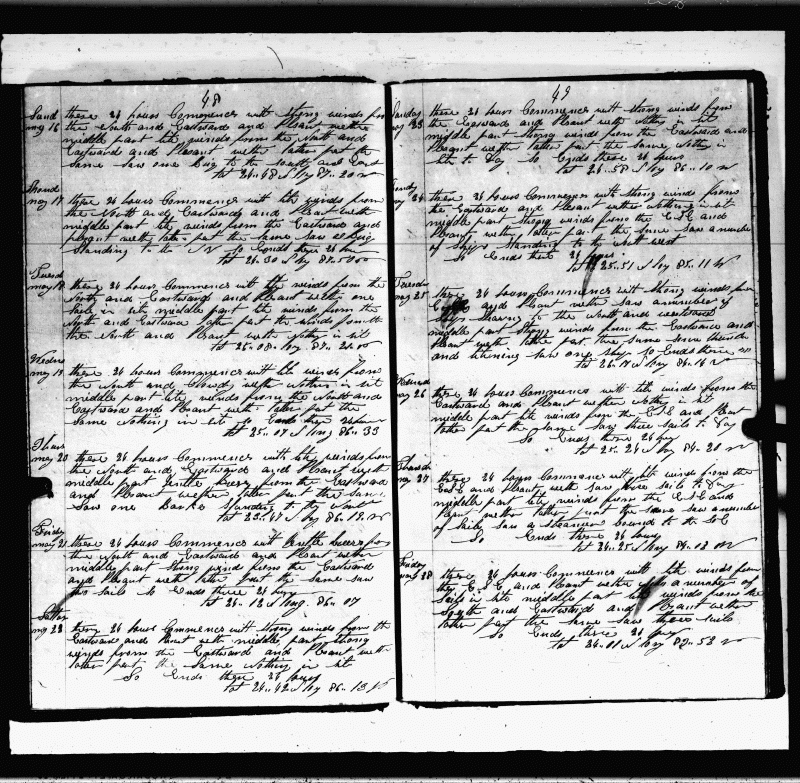 48
Sund may 16 these 24 hours Commences with strong winds from
the North and Eastward and Pleasant wether
middle part lite winds from the North and
Eastward and Pleasant wether later part the
same saw one Brig to the South and East
lat 24..48 long 87..20 W
may 17 these 24 hours Commences with lite winds from
the North and Eastward and Pleasant wether
middle part lite winds from the Eastward and
pleasant wether later part the same saw a Brig
Standing to the So Ends these 24 hours
lat 26.30 long 87..50 W
Tuesd may 18 these 24 hours Commences with lite winds from the
North and Eastward and Pleasant wether one
in sit middle part lite winds from the
North and Eastward later part the winds from
the North and Pleasant with Nothing in sit
lat 26..08 long 87..
Wednes may 19 these 24 hours Commences with lite winds from
the North and Cloudy wether Nothing in sit
middle part lite winds from the North and
Eastward and Pleasant wether later part the
Same Nothing in sit So Ends these 24 hours
lat 25..07 long 86..35
Thurs may 20 these 24 hours Commences with lite winds from
the North and Eastward and Pleasant wether
middle part Gentle breeze from the Eastward
and Pleasant wether later part the Same
Saw one Barke Standing to the
lat 23..47 long 86..12 W
Friday may 21 these 24 hours Commences with breeze from
the North and Eastward and Pleasant wether
middle part Strong wind from the Eastward
and Pleasant wether later part the same saw
sails So Ends these 24 hours
lat 24..12 long 86..07
Satter may 22 these 24 hours Commences with Strong winds from the
Eastward and Pleasant wether middle part Strong
winds from the Eastward and Pleasant wether
latter part the Same Nothing in sit
So Ends these 24 hours
lat 24..42 long 86..13 W
49
Sunday 23 these 24 hours Commences with Strong winds from
the Eastward and Pleasant wether Nothing in sit
middle part Strong winds from the Eastward and
Pleasant wether latter part the same Nothing in
sit to Day So Ends these 24 hours
lat 24..58 long 86..10 W
24 these 24 hours Commences with Strong winds from
the Eastward and Pleasant wether Nothing in sit
middle part Strong winds from the E.S.E and
Pleasant wether latter part the same saw a number
of Ships Standing to the North west
So Ends these 24 hours
lat 25..51 long 85..11 W
Tuesday may 25 these 24 hours Commences with Strong winds from
and Pleasant wether Saw a number of
to the North and westward
middle part Strong winds from the Eastward and
Pleasant wether latter part the same
and saw one Ship So Ends these 24
lat 26..17 long 86..16 W
may 26 these 24 hours Commences with lite winds from the
Eastward and Pleasant wether Nothing in sit
middle part lite winds from the E.S.E and Pleasant
latter part the Same saw three Sails to Day
So Ends these 24 hours
lat 25..24 long 84..20 W
Thursd may 27 these 24 hours Commences with lite winds from the
E.S.E and Pleasant wether saw Sails to Day
middle part lite winds from the E.S.E and
Pleasant wether latter part the same saw a number
of Sails Saw a Steamer bound to the
So Ends these 24 hours
lat 24..25 long 84..03 W
Friday may 28 these 24 hours Commences with lite winds from
the E.S.E and Pleasant wether a number of
Sails in site middle part lite winds from the
South and Eastward and Pleasant wether
latter part the same saw three Sails
So Ends these 24 hours
lat 24..01 long 82..53 W